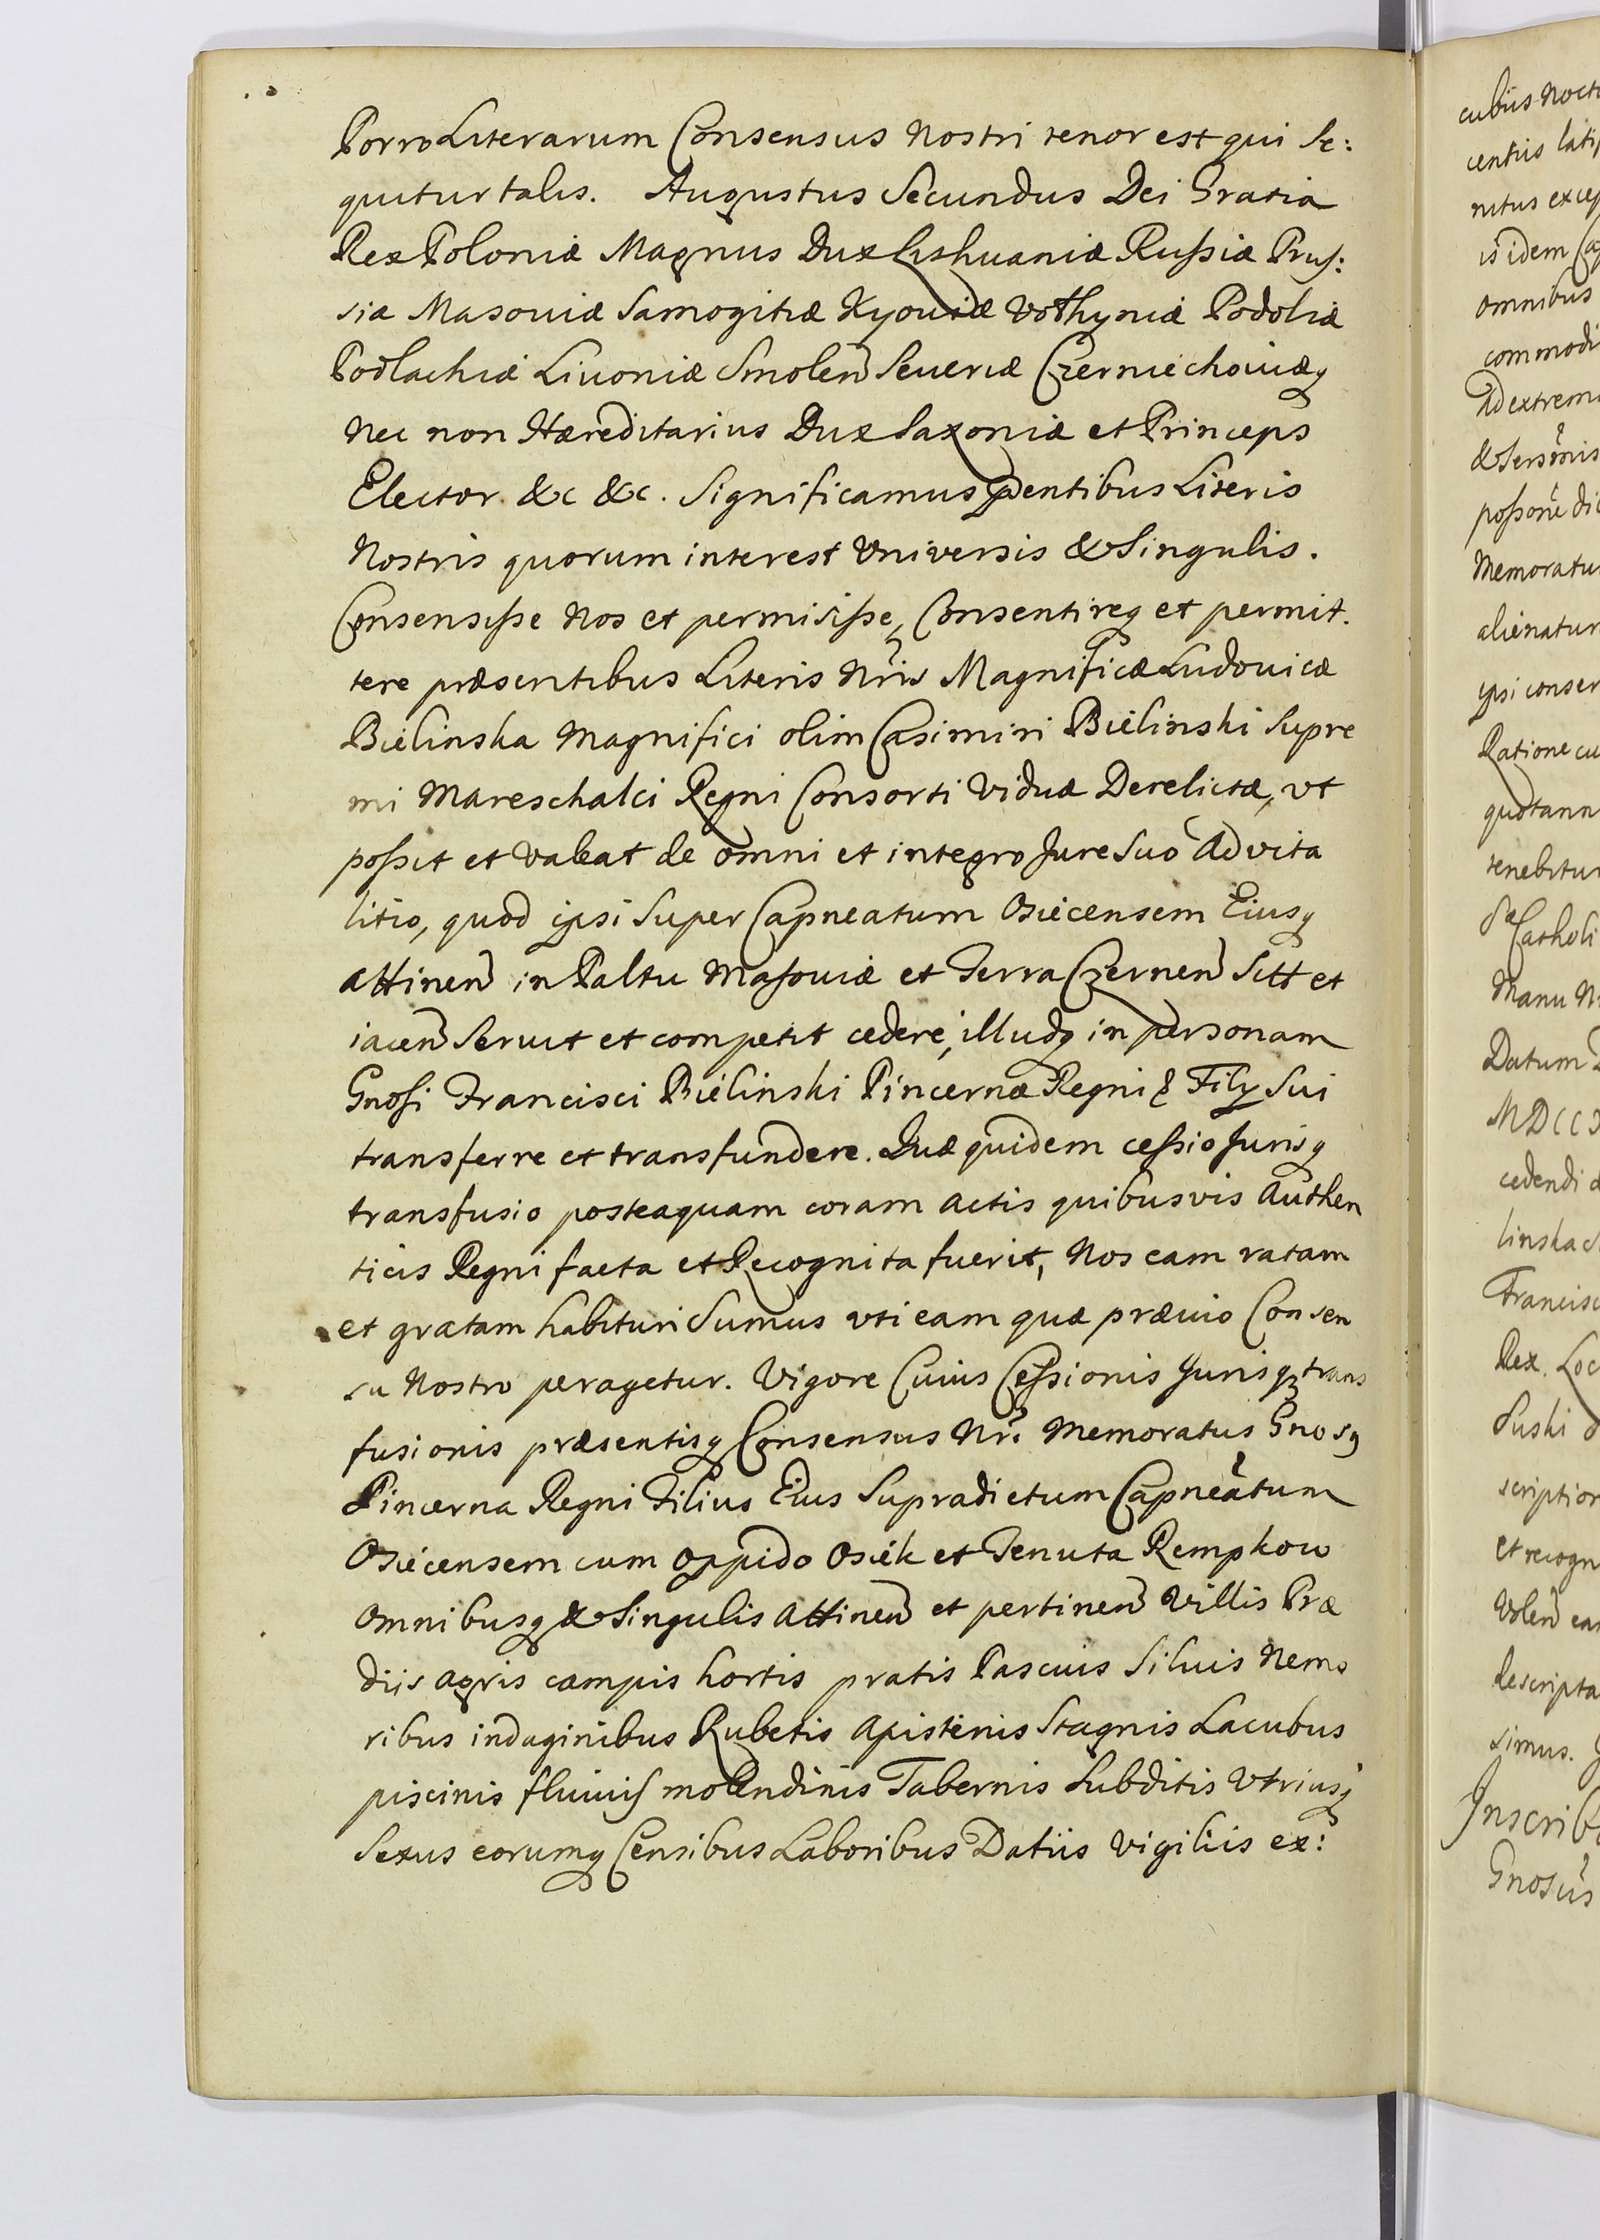 Porro Literarum Consensus Nostri tenor est qui se:
quitur talis. Augustus Secundus Dei Gratia
Rex Poloniæ Magnus Dux Lithuaniæ Rußiæ Prus:
siæ Masouiæ Samogitiæ Kyouiæ Volhyniæ Podoliæ
Podlachiæ Liuoniæ Smolen Seueriæ Czerniechouiæq
Nec non Hæreditarius Dux Saxoniæ et Princeps
Elector &c &c. Significamus pntibus Literis
Nostris quorum interest Vniversis & Singulis.
Consensiße Nos et permisiße, Consentireq et permit.
tere præsentibus Literis Nris Magnificæ Ludouicæ
Bielinska Magnifici olim Casimiri Bielinski Supre
mi Mareschalci Regni Consorti Viduæ Derelictæ, vt
poßit et valeat de omni et integro Jure Suo Advita
litio, quod ipsi Super Capneatum Osiecensem Eiusq
attinen in Paltu Masouiæ et Terra Czernen Sitt et
iacen Seruit et competit cedere, illudq in personam
Gnosi Francisci Bielinski Pincernæ Regni & Filij Sui
transferre et transfundere. Quæ quidem ceßio Jurisq
transfusio posteaquam coram Actis quibusvis Authen
ticis Regni facta et Recognita fuerit, Nos eam ratam
et gratam habituri Sumus vti eam quæ præuio Consen
su Nostro peragetur. Vigore Cuius Ceßionis Jurisq trans
fusionis præsentisq Consensus Nri Memoratus Gnosq
Pincerna Regni Filius Eius Supradictum Capneatum
Osiecensem cum Oppido Osiek et Tenuta Rempkow
Omnibusq & Singulis Attinen et pertinen Villis Præ
diis Agris campis hortis pratis Pascuis Siluis Nemo
ribus indaginibus Rubetis Apisterijs Stagnis Lacubus
piscinis fluuijs molendinis Tabernis Subditis Vtriusq
Sexus eorumq Censibus Laboribus Datiis Vigiliis ex:
cubiis Noct
centiis lati
nitus excep
omnibus
commodi
Ad extrem
Memoratu
alienatur
ipsi conser
Ratione cu
quotann
tenebitur
Catholi
Manu N
Datum
MDCCX
cedendi d
linska
Francisc
Rex. Loc
scription
et recogn
Volen ea
descripta
simus.
Inscrib
Gnosus